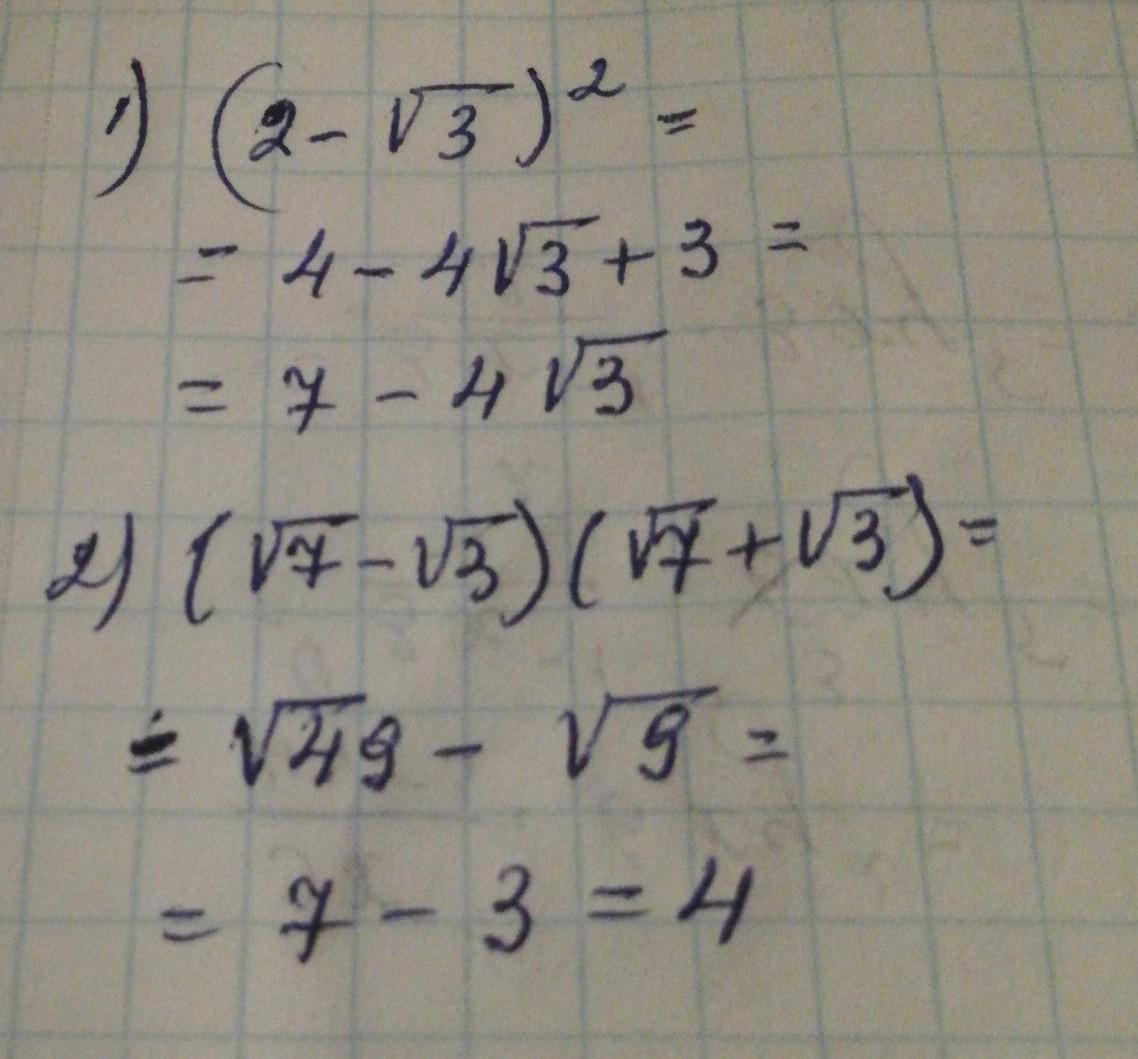 1) (2 - √3)² =
= 4 - 4√3 + 3 =
= 7 - 4√3
2) (√7 - √3)(√7 + √3) =
= √49 - √9 =
= 7 - 3 = 4